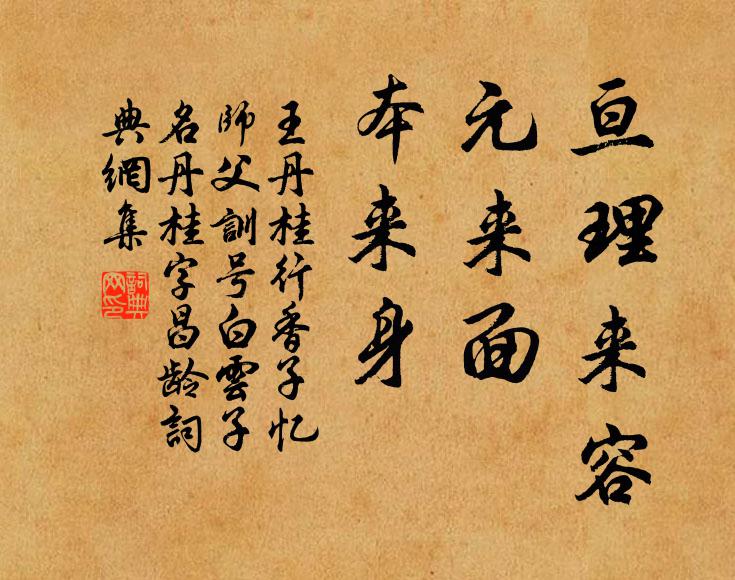 亘理来容
元来面
本来身
王丹桂行香子忆
師父訓号白雲子
名丹桂字昌龄詞
典網集
詞典
网印